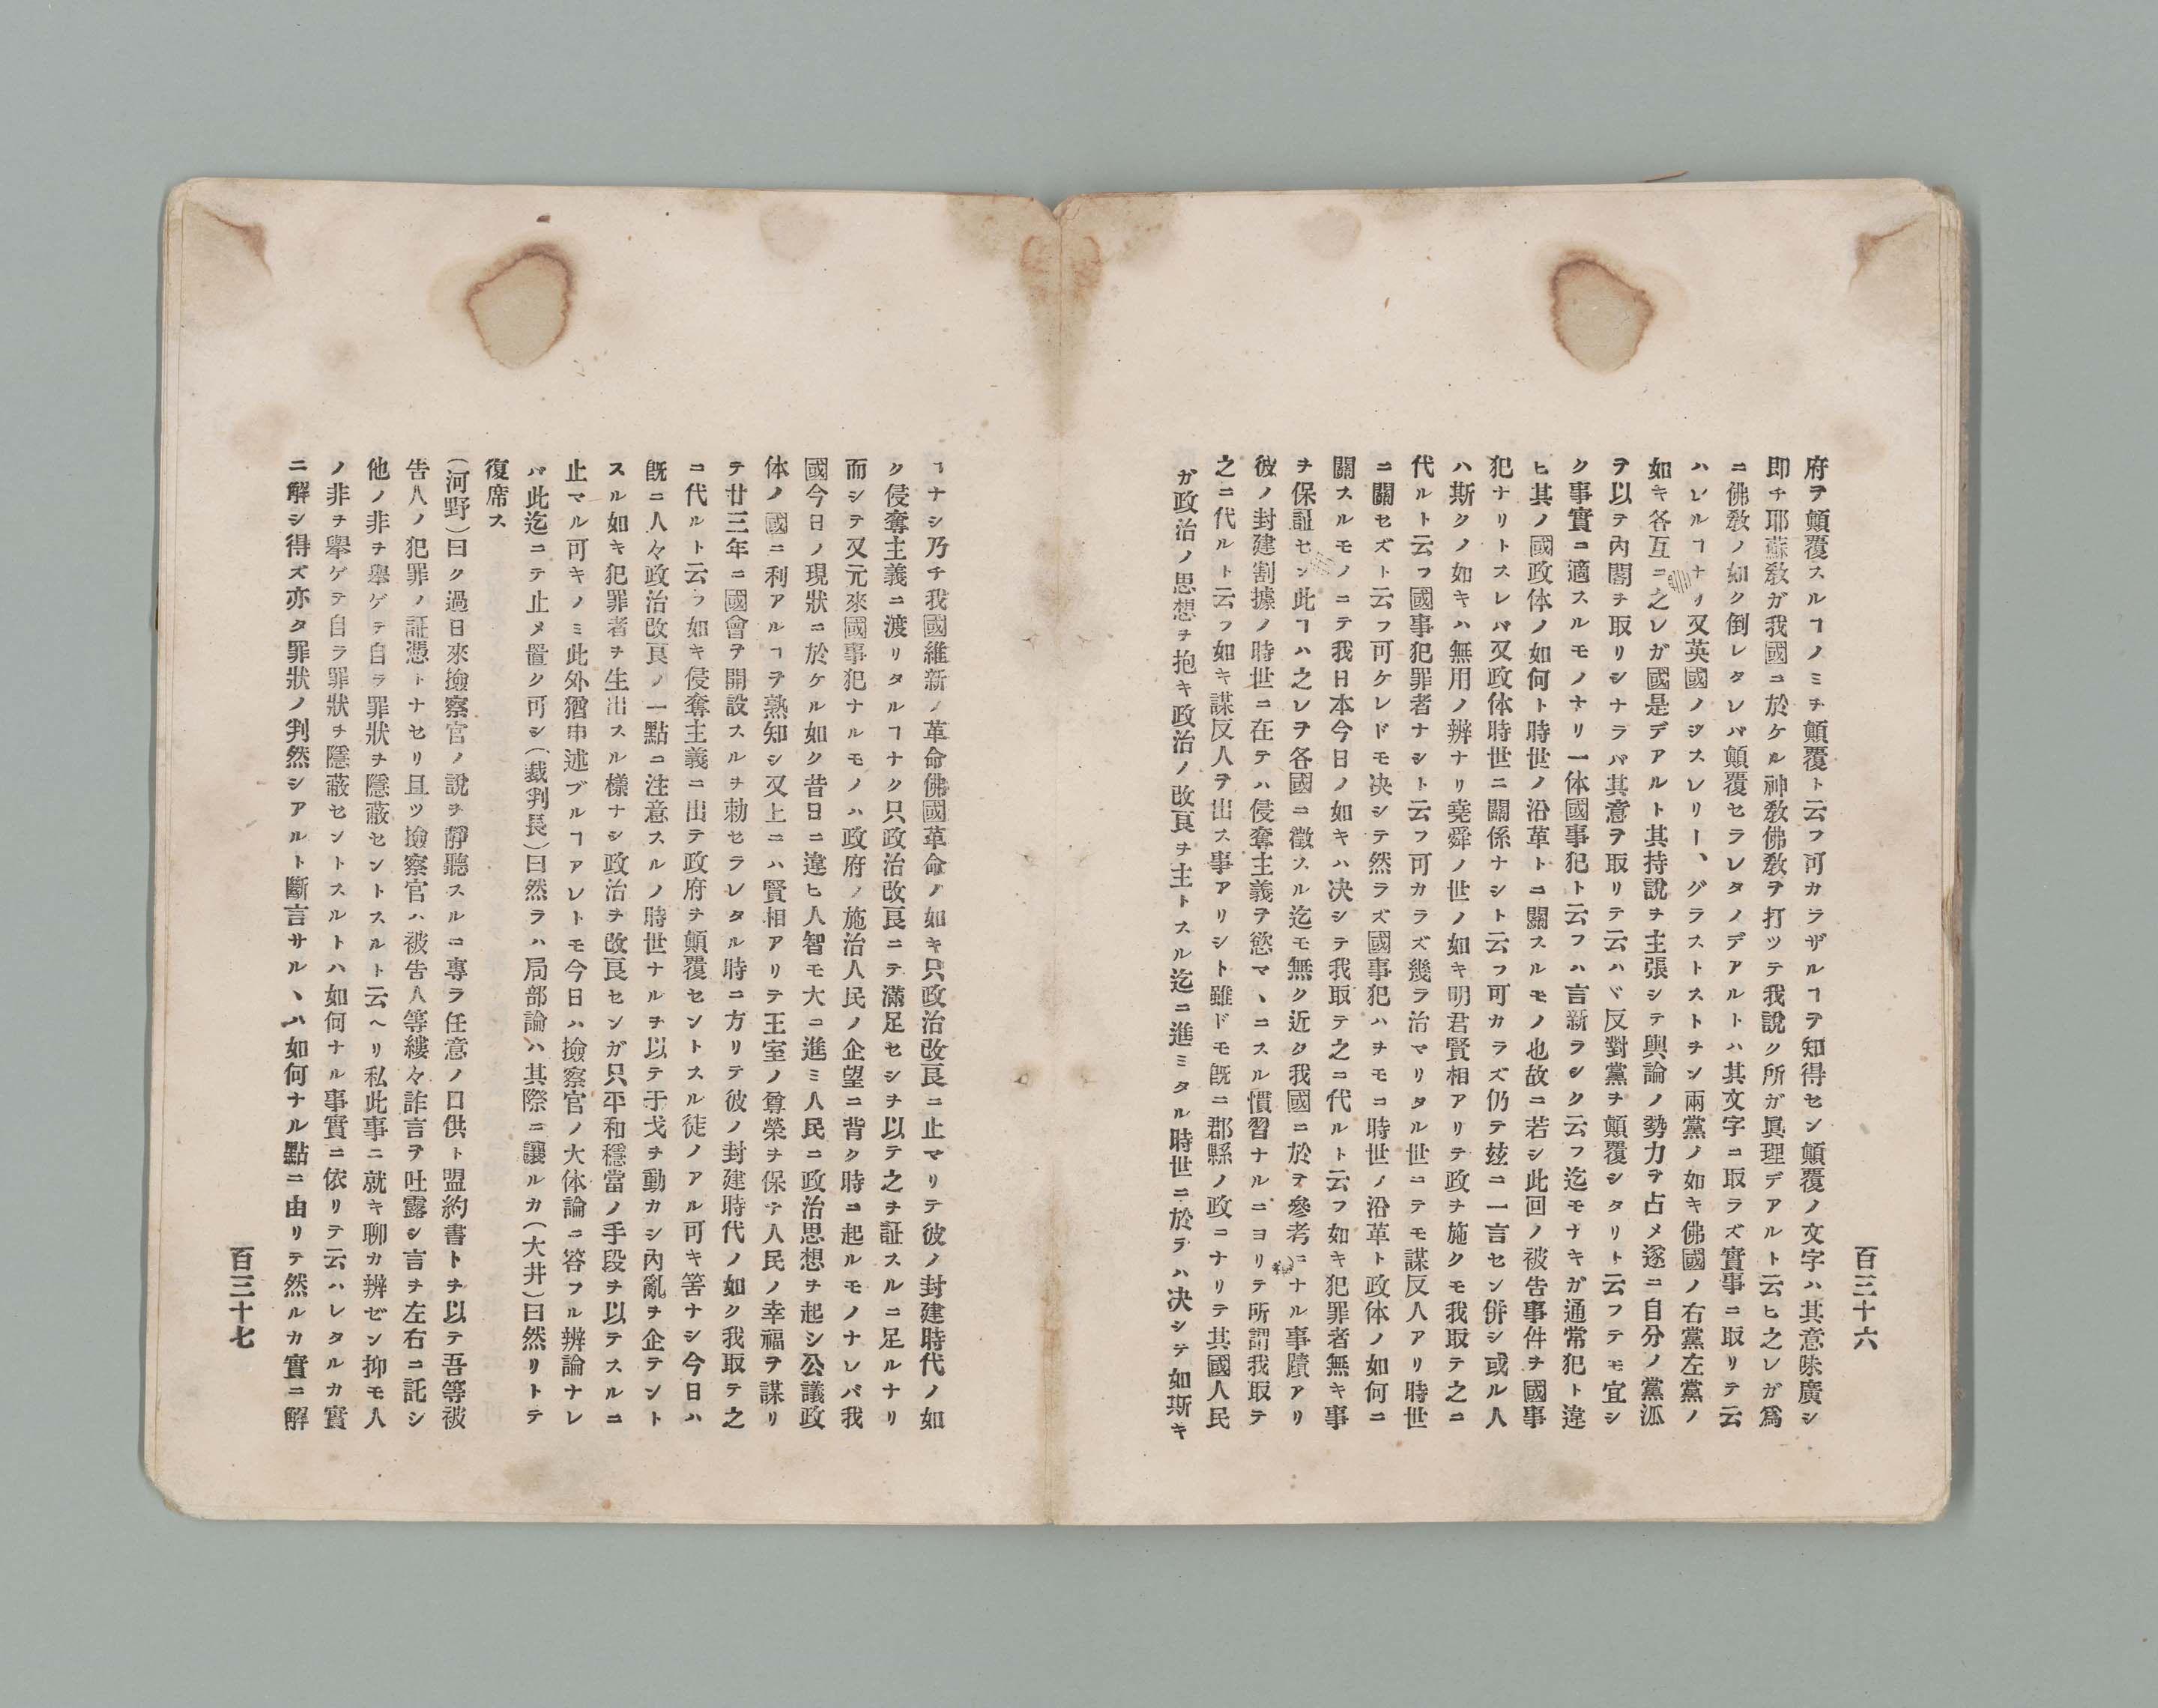 百三十六
府ヲ顛覆スルヿノミヲ顛覆ト云フ可カラザルヿヲ知得セン顛覆ノ文字ハ其意味廣シ
即チ耶蘇敎ガ我國ニ於ケル神敎佛敎ヲ打ツテ我說ク所ガ眞理デアルト云ヒ之レガ爲
ニ佛敎ノ如ク倒レタレバ顛覆セラレタノデアルトハ其文字ニ取ラズ實事ニ取リテ云
ハレルヿナリ又英國ノジスレリー、グラストストチン兩黨ノ如キ佛國ノ右黨左黨ノ
如キ各互ニ之レガ國是デアルト其持說ヲ主張シテ輿論ノ勢力ヲ占メ遂ニ自分ノ黨派
ヲ以テ內閣ヲ取リシナラバ其意ヲ取リテ云ハヾ反對黨ヲ顛覆シタリト云フテモ宜シ
ク事實ニ適スルモノナリ一体國事犯ト云フハ言新ラシク云フ迄モナキガ通常犯ト違
ヒ其ノ國政体ノ如何ト時世ノ沿革トニ關スルモノ也故ニ若シ此回ノ被告事件ヲ國事
犯ナリトスレバ又政体時世ニ關係ナシト云フ可カラズ仍テ玆ニ一言セン併シ或ル人
ハ斯クノ如キハ無用ノ辨ナリ堯舜ノ世ノ如キ明君賢相アリテ政ヲ施クモ我取テ之ニ
代ルト云フ國事犯罪者ナシト云フ可カラズ幾ラ治マリタル世ニテモ謀反人アリ時世
ニ關セズト云フ可ケレドモ决シテ然ラズ國事犯ハヲモニ時世ノ沿革ト政体ノ如何ニ
關スルモノニテ我日本今日ノ如キハ决シテ我取テ之ニ代ルト云フ如キ犯罪者無キ事
ヲ保証セン此ヿハ之レヲ各國ニ徵スル迄モ無ク近ク我國ニ於テ參考ニナル事蹟アリ
彼ノ封建割據ノ時世ニ在テハ侵奪主義ヲ慾マヽニスル慣習ナルニヨリテ所謂我取テ
之ニ代ルト云フ如キ謀反人ヲ出ス事アリシト雖ドモ既ニ郡縣ノ政ニナリテ其國人民
ガ政治ノ思想ヲ抱キ政治ノ改良ヲ主トスル迄ニ進ミタル時世ニ於テハ决シテ如斯キ
ヿナシ乃チ我國維新ノ革命佛國革命ノ如キ只政治改良ニ止マリテ彼ノ封建時代ノ如
ク侵奪主義ニ渡リタルヿナク只政治改良ニテ滿足セシヲ以テ之ヲ証スルニ足ルナリ
而シテ又元來國事犯ナルモノハ政府ノ施治人民ノ企望ニ背ク時ニ起ルモノナレバ我
國今日ノ現狀ニ於ケル如ク昔日ニ違ヒ人智モ大ニ進ミ人民ニ政治思想ヲ起シ公議政
体ノ國ニ利アルヿヲ熟知シ又上ニハ賢相アリテ王室ノ尊榮ヲ保チ人民ノ幸福ヲ謀リ
テ廿三年ニ國會ヲ開設スルヲ勅セラレタル時ニ方リテ彼ノ封建時代ノ如ク我取テ之
ニ代ルト云フ如キ侵奪主義ニ出テ政府ヲ顛覆セントスル徒ノアル可キ筈ナシ今日ハ
既ニ人々政治改良ノ一點ニ注意スルノ時世ナルヲ以テ干戈ヲ動カシ內亂ヲ企テント
スル如キ犯罪者ヲ生出スル樣ナシ政治ヲ改良センガ只平和穩當ノ手段ヲ以テスルニ
止マル可キノミ此外猶申述ブルヿアレトモ今日ハ撿察官ノ大体論ニ答フル辨論ナレ
バ此迄ニテ止メ置ク可シ（裁判長）曰然ラハ局部論ハ其際ニ讓ルカ（大井）曰然リトテ
復席ス
（河野）曰ク過日來撿察官ノ說ヲ靜聽スルニ專ラ任意ノ口供ト盟約書トヲ以テ吾等被
告人ノ犯罪ノ証憑トナセリ且ツ撿察官ハ被告人等縷々詐言ヲ吐露シ言ヲ左右ニ託シ
他ノ非ヲ擧ゲテ自ラ罪狀ヲ隱蔽セントスルト云ヘリ私此事ニ就キ聊カ辨ゼン抑モ人
ノ非ヲ擧ゲテ自ラ罪狀ヲ隱蔽セントスルトハ如何ナル事實ニ依リテ云ハレタルカ實
ニ解シ得ズ亦タ罪狀ノ判然シアルト斷言サルヽハ如何ナル點ニ由リテ然ルカ實ニ解
百三十七